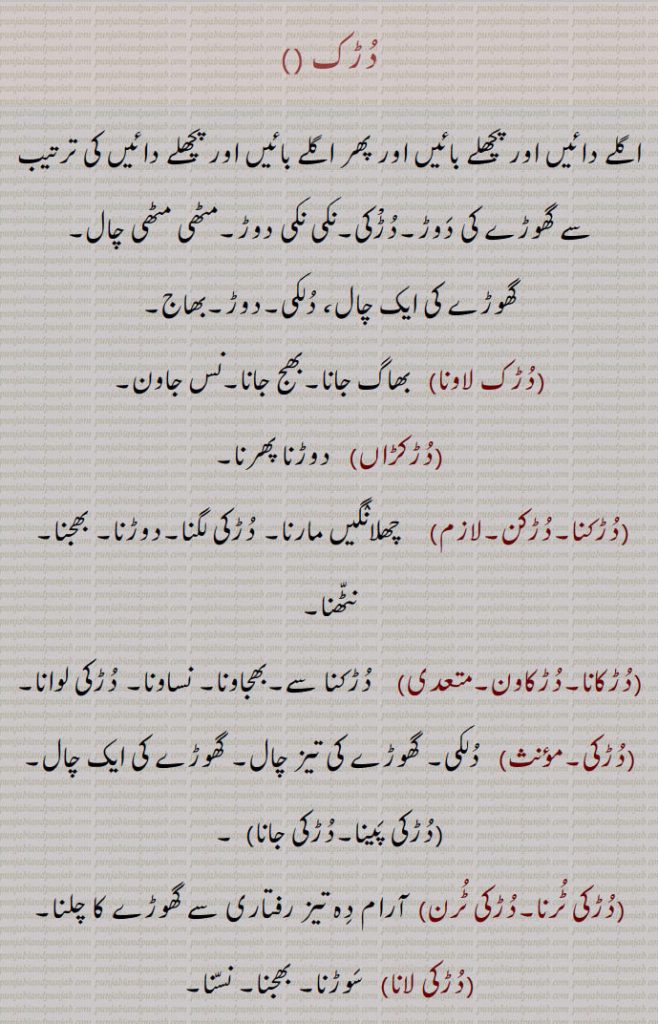 دُڑک ()
اگلے دائیں اور پچھلے بائیں اور پھر اگلے بائیں اور پچھلے دائیں کی ترتیب
سے گھوڑے کی دَوڑ۔دُڑْکی۔نکی نکی دوڑ۔مٹھی مٹھی چال۔
گھوڑے کی ایک چال، دُلکی۔دوڑ۔بھاج۔
(دُڑک لاونا) بھاگ جانا۔بھج جانا۔نس جاون۔
(دُڑکڑاں) دوڑنا پھرنا۔
(دُڑکنا۔دُڑکن۔لازم) چھلانگیں مارنا۔ دُڑکی لگنا۔دوڑنا۔ بھجنا۔
نٹھّنا۔
(دُڑکانا۔دُڑکاون۔متعدی) دُڑکنا سے۔بھجاونا۔ نساونا۔ دُڑکی لوانا۔
(دُڑکی۔مؤنث) دُلکی۔ گھوڑے کی تیز چال۔ گھوڑے کی ایک چال۔
(دُڑکی پَینا۔دُڑکی جانا) ۔
(دُڑکی ٹُرنا۔دُڑکی ٹُرن) آرام دِہ تیز رفتاری سے گھوڑے کا چلنا۔
(دُڑکی لانا) سَوڑنا۔ بھجنا۔ نسّنا۔